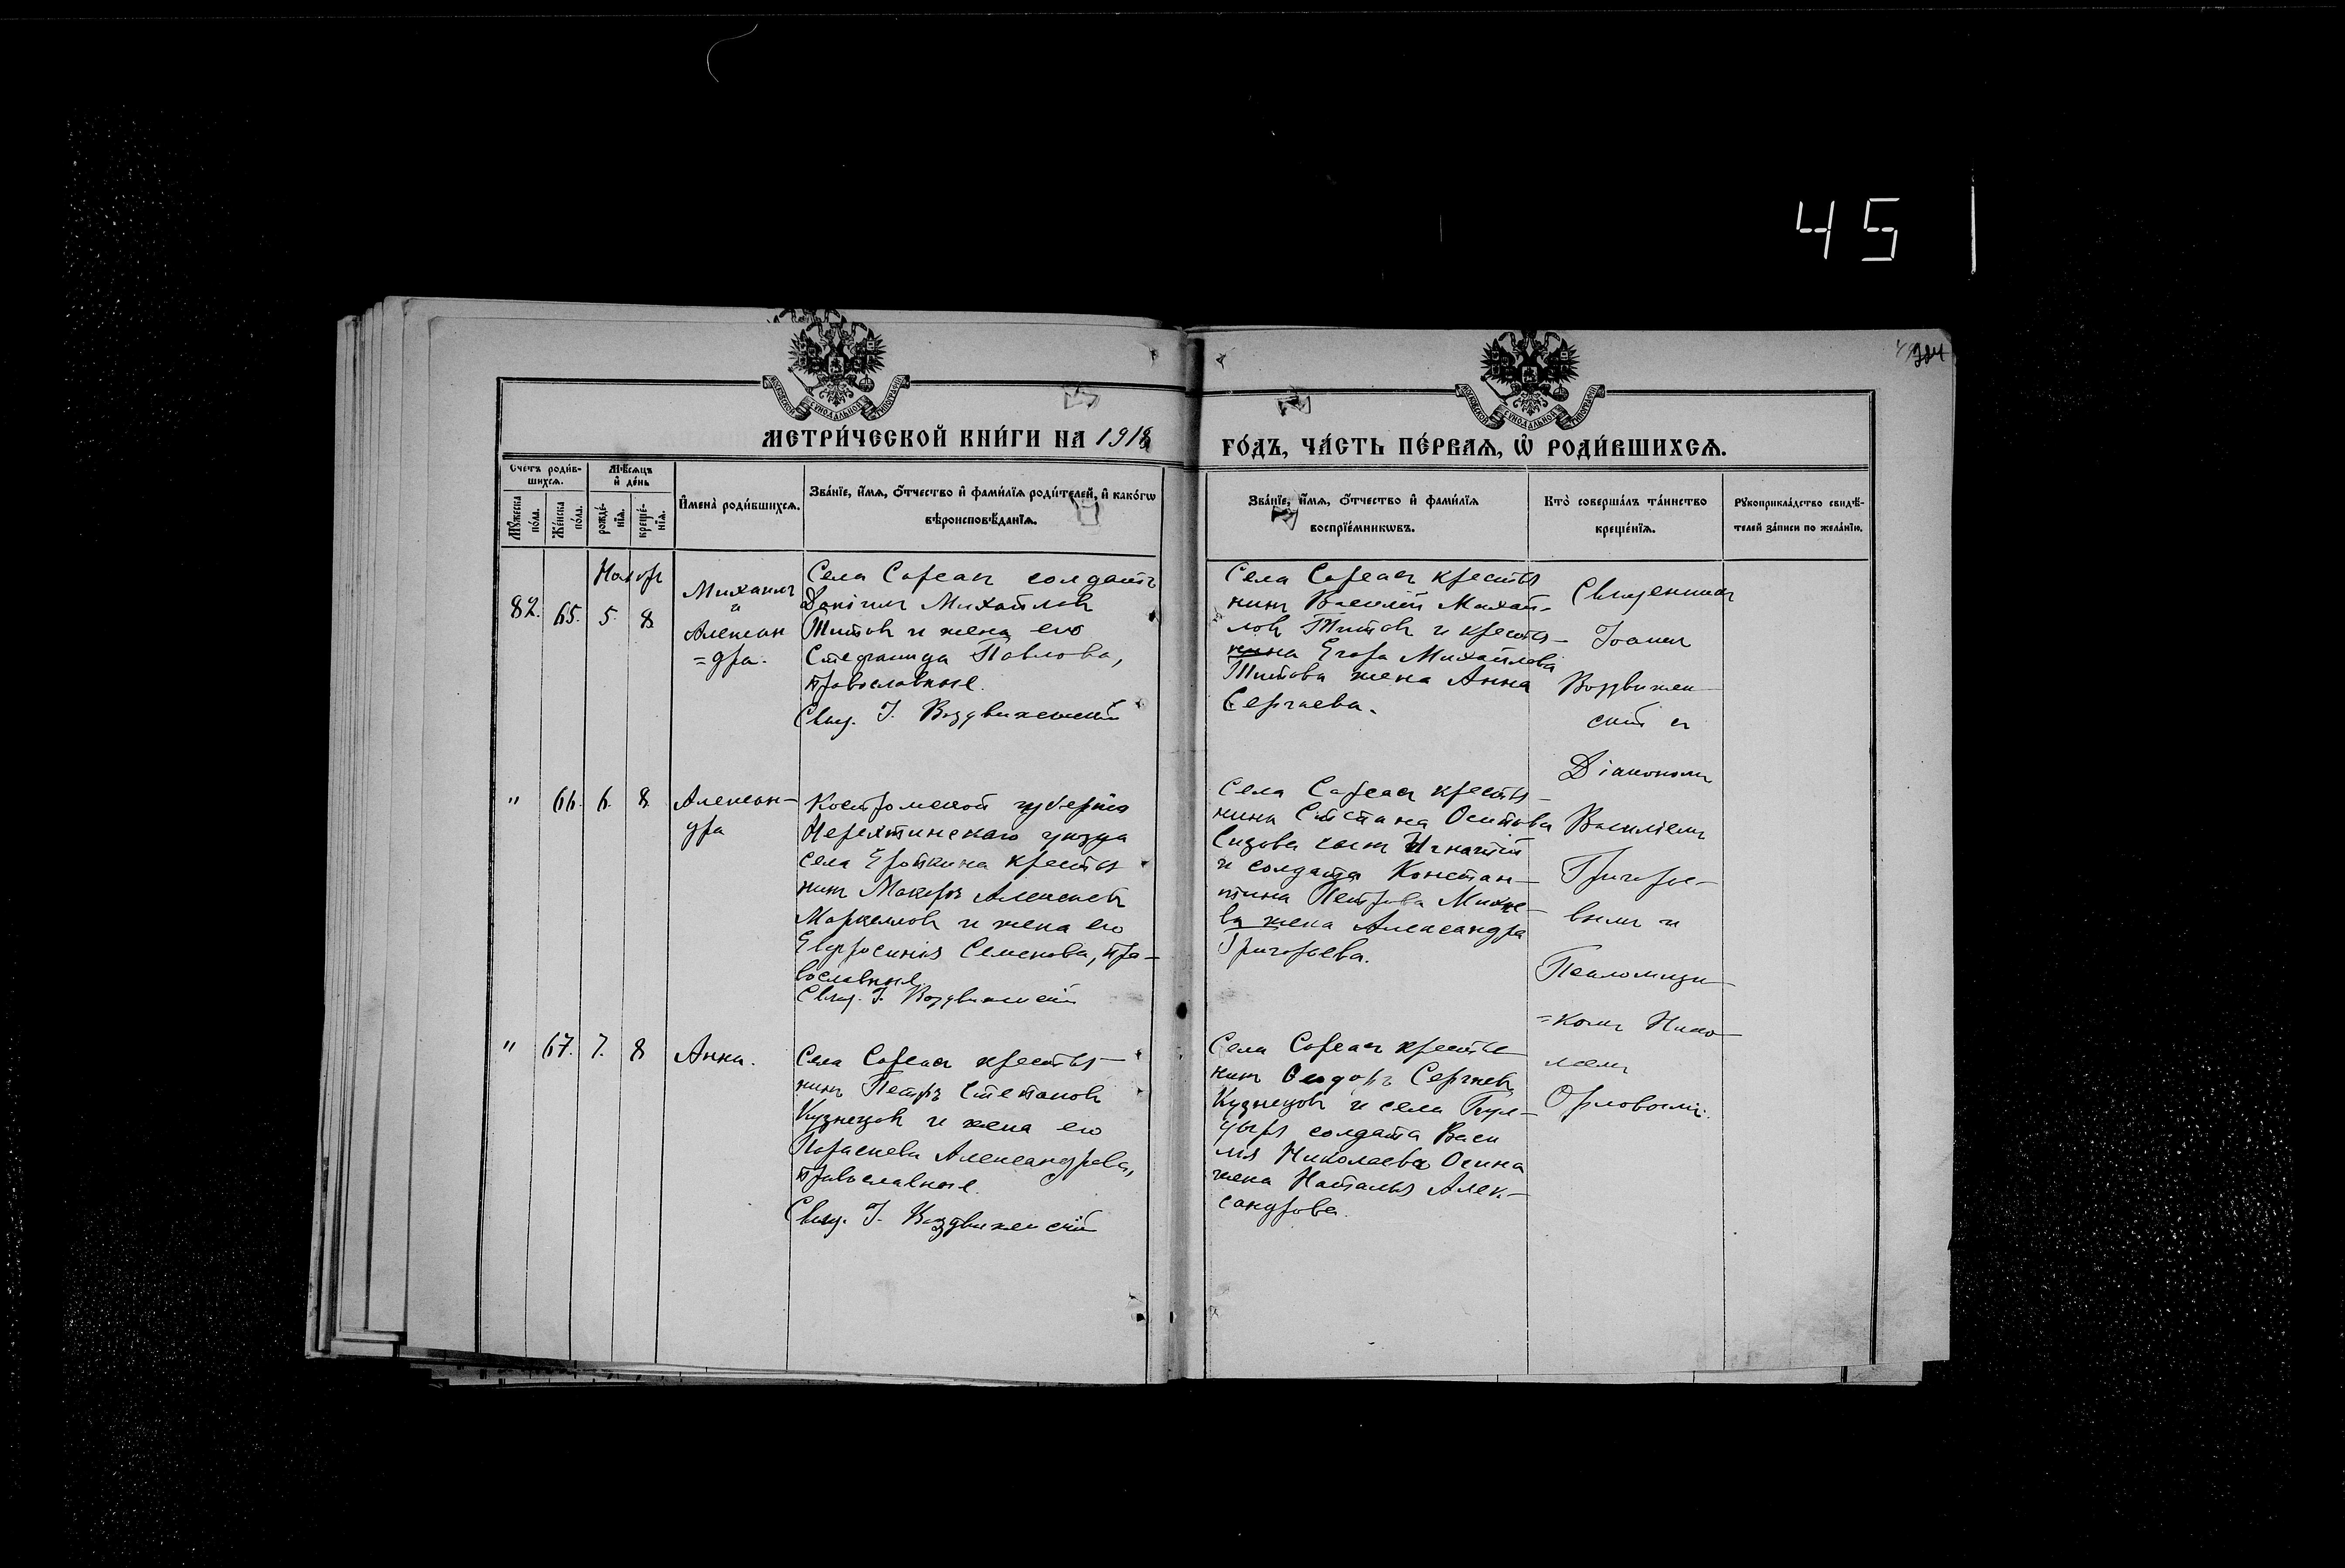 45
384
МОСКОВСКОЙ СѴНОДАЛЬНОЙ ТИПОГРАФІИ
МОСКОВСКОЙ СѴНОДАЛЬНОЙ ТИПОГРАФІИ
МЕТРИ́ЧЕСКОЙ КНИ́ГИ НА 1918
ГО́ДЪ, ЧА́СТЬ ПЕ́РВАѦ, Ѽ РОДИ́ВШИХСѦ.
Сче́тъ роди́в-
шихсѧ.
Мѣ́сѧцъ
и҆ де́нь
Мꙋ́жеска
по́ла.
Же́нска
по́ла.
рожде́-
нїѧ.
креще́-
нїѧ.
И҆мена̀ роди́вшихсѧ.
Зва́нїе, и҆́мѧ, ѻ҆́тчество и҆ фами́лїѧ роди́телей, и҆ како́гѡ
вѣроисповѣ́данїѧ.
Зва́нїе, и҆́мѧ, ѻ҆́тчество и҆ фами́лїѧ
воспрїе́мникѡвъ.
Кто̀ соверша́лъ та́инство
креще́нїѧ.
Рꙋкоприкла́дство свидѣ́-
телей за́писи по жела́нїю.
82. 65. 5. 8.
Михаилъ
и
Алексан
=дра.
Села Сореасъ солдатъ
Даніилъ Михайловъ
Титовъ и жена его
Стефанида Павлова,
православные.
Свящ. І. Воздвиженскій
Села Сореасъ крестья
нинъ Василій Михай-
ловъ Титовъ и крестья-
нина Егора Михайлова
Титова жена Анна
Сергѣева.
Священникъ
Іоаннъ
Воздвижен-
скій съ
Діакономъ
Василіемъ
Григорье-
вымъ и
Псаломщи-
=комъ Нико-
лаемъ
Орловымъ.
" 66. 6. 8.
Алексан-
дра
Костромской губерніи
Нерехтинскаго уѣзда
села Ероткина крестья
нинъ Макаръ Алексѣевъ
Маркеловъ и жена его
Евфросинія Семенова, пра-
вославные
Свящ. І. Воздвиженскій
Села Сореасъ крестья-
нина Степана Осипова
Сизова сынъ Игнатій
и солдата Констан-
тина Петрова Михе-
ва жена Александра
Григорьева.
" 67. 7. 8
Анна.
Села Сореасъ крестья-
нинъ Петръ Степановъ
Кузнецовъ и жена его
Параскева Александрова,
православные.
Свящ. І. Воздвиженскій
Села Сореасъ крестья-
нинъ Ѳеодоръ Сергѣевъ
Кузнецовъ и села
солдата Васи
лія Николаева Осина
жена Наталья Алек-
сандрова.